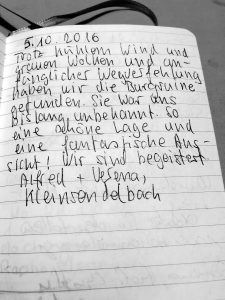 5.10.2016
Trotz kühlem Wind und
grauen Wolken und an-
fänglicher Wegverfehlung
haben wir die Burgruine
gefunden. Sie war uns
bislang unbekannt. So
eine schöne Lage und
eine fantastische Aus-
sicht! Wir sind begeistert
Alfred + Verena,
Kleinsendelbach